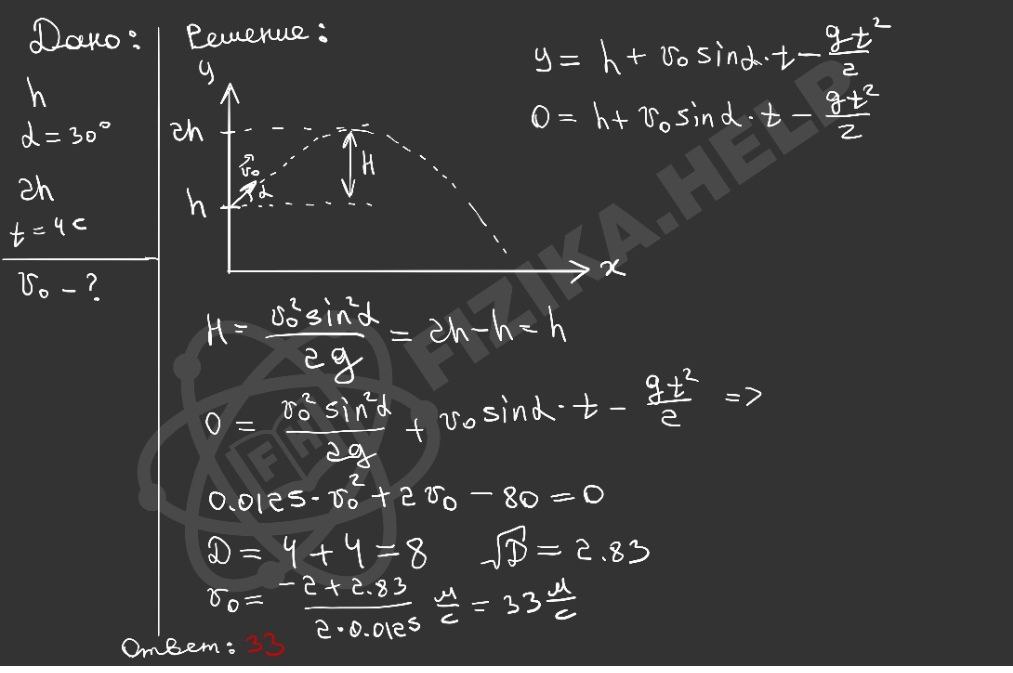 Дано:
h
α = 30°
2h
t = 4 с
v₀ – ?
Решение:
y
2h
v⃗₀
α
H
h
x
y = h + v₀ sinα · t – gt²/2
0 = h + v₀ sinα · t – gt²/2
H = v₀² sin²α / 2g = 2h – h = h
0 = v₀² sin²α / 2g + v₀ sinα · t – gt²/2 =>
0.0125 · v₀² + 2v₀ – 80 = 0
D = 4 + 4 = 8 √D = 2.83
v₀ = –2 + 2.83 / 2 · 0.0125 м/с = 33 м/с
Ответ: 33
FIZIKA.HELP